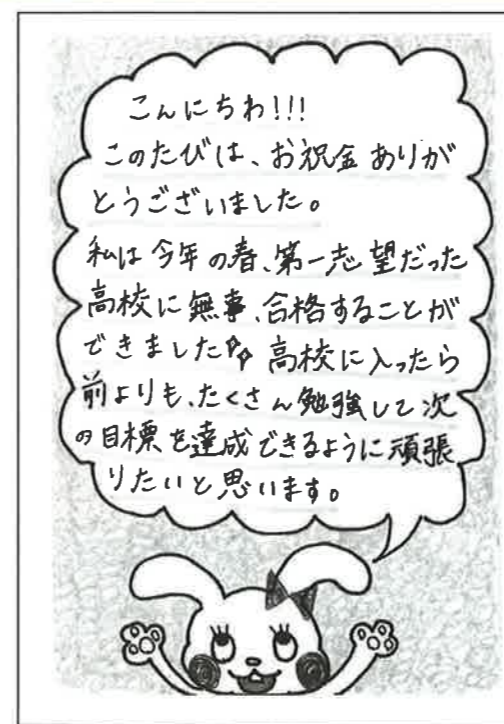 こんにちわ!!!
このたびは、お祝金ありが
とうございました。
私は今年の春、第一志望だった
高校に無事、合格することが
できました♪♪ 高校に入ったら
前よりも、たくさん勉強して次
の目標を達成できるように頑張
りたいと思います。